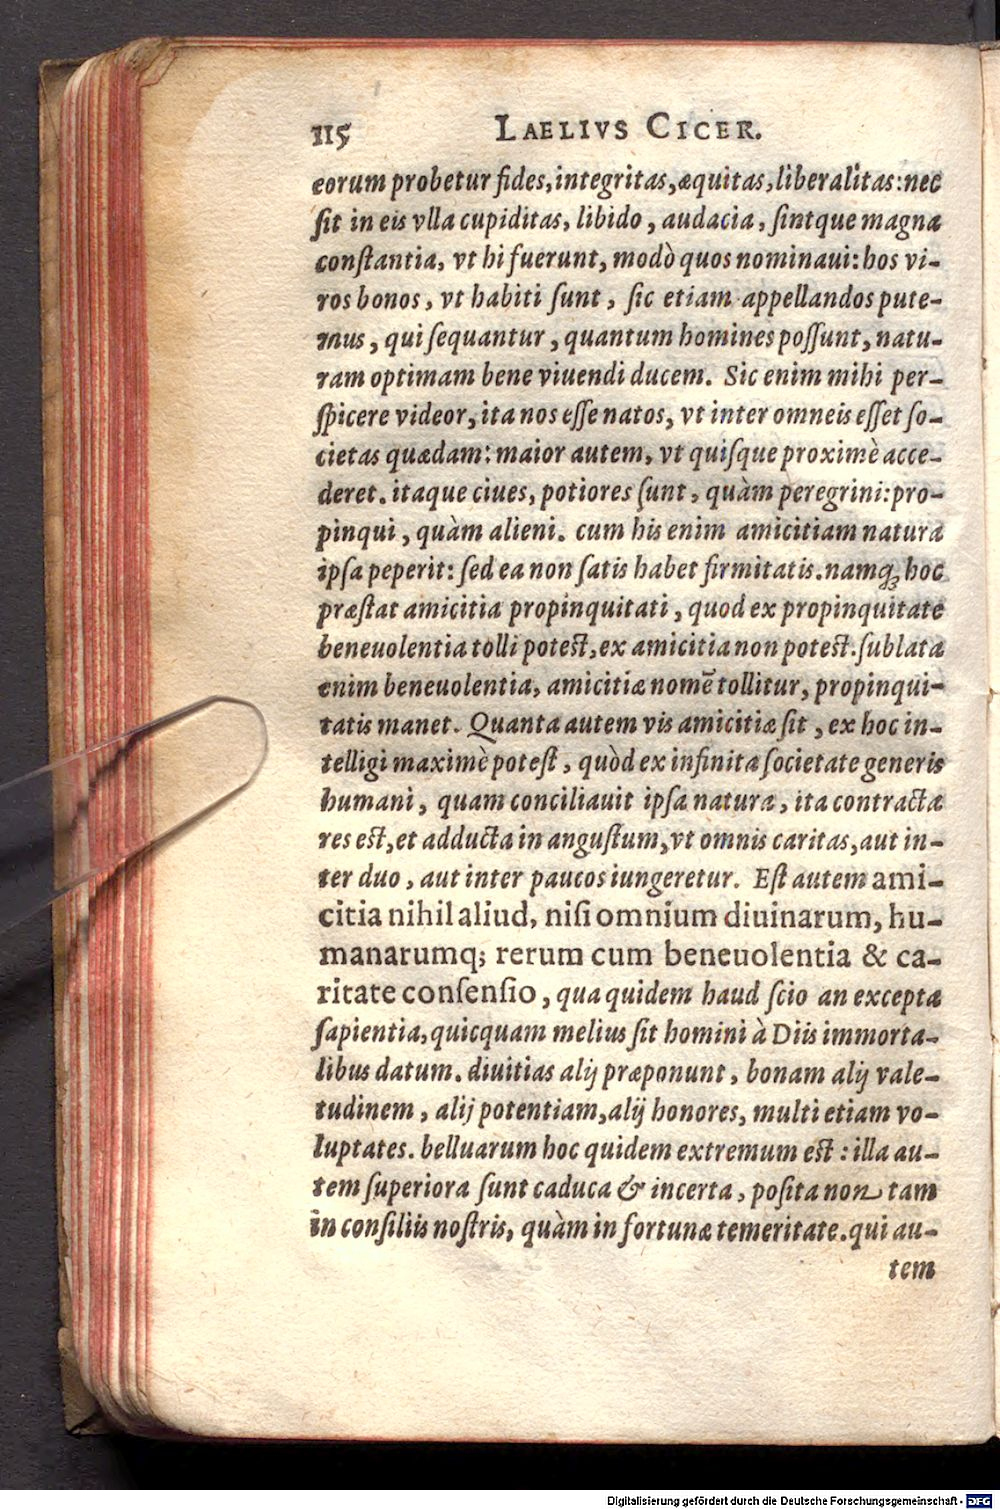 115 LAELIVS CICER.
eorum probetur fides, integritas, æquitas, liberalitas: nec
ſit in eis vlla cupiditas, libido, audacia, ſintque magna
conſtantia, vt hi fuerunt, modò quos nominaui: hos vi-
ros bonos, vt habiti ſunt, ſic etiam appellandos pute-
mus, qui ſequantur, quantum homines poſſunt, natu-
ram optimam bene viuendi ducem. Sic enim mihi per-
ſpicere videor, ita nos eſſe natos, vt inter omneis eſſet ſo-
cietas quædam: maior autem, vt quiſque proximè acce-
deret. itaque ciues, potiores ſunt, quàm peregrini: pro-
pinqui, quàm alieni. cum his enim amicitiam natura
ipſa peperit: ſed ea non ſatis habet firmitatis. namq; hoc
præſtat amicitia propinquitati, quod ex propinquitate
beneuolentia tolli poteſt, ex amicitia non poteſt. ſublata
enim beneuolentia, amicitiæ nomē tollitur, propinqui-
tatis manet. Quanta autem vis amicitiæ ſit, ex hoc in-
telligi maximè poteſt, quòd ex infinita ſocietate generis
humani, quam conciliauit ipſa natura, ita contracta
res eſt, et adducta in anguſtum, vt omnis caritas, aut in-
ter duo, aut inter paucos iungeretur. Eſt autem ami-
citia nihil aliud, niſi omnium diuinarum, hu-
manarumq; rerum cum beneuolentia & ca-
ritate conſenſio, qua quidem haud ſcio an excepta
ſapientia, quicquam melius ſit homini à Diis immorta-
libus datum. diuitias alij præponunt, bonam alij vale-
tudinem, alij potentiam, alij honores, multi etiam vo-
luptates. belluarum hoc quidem extremum eſt: illa au-
tem ſuperiora ſunt caduca & incerta, poſita non tam
in conſiliis noſtris, quàm in fortunæ temeritate. qui au-
tem
Digitalisierung gefördert durch die Deutsche Forschungsgemeinschaft - DFG